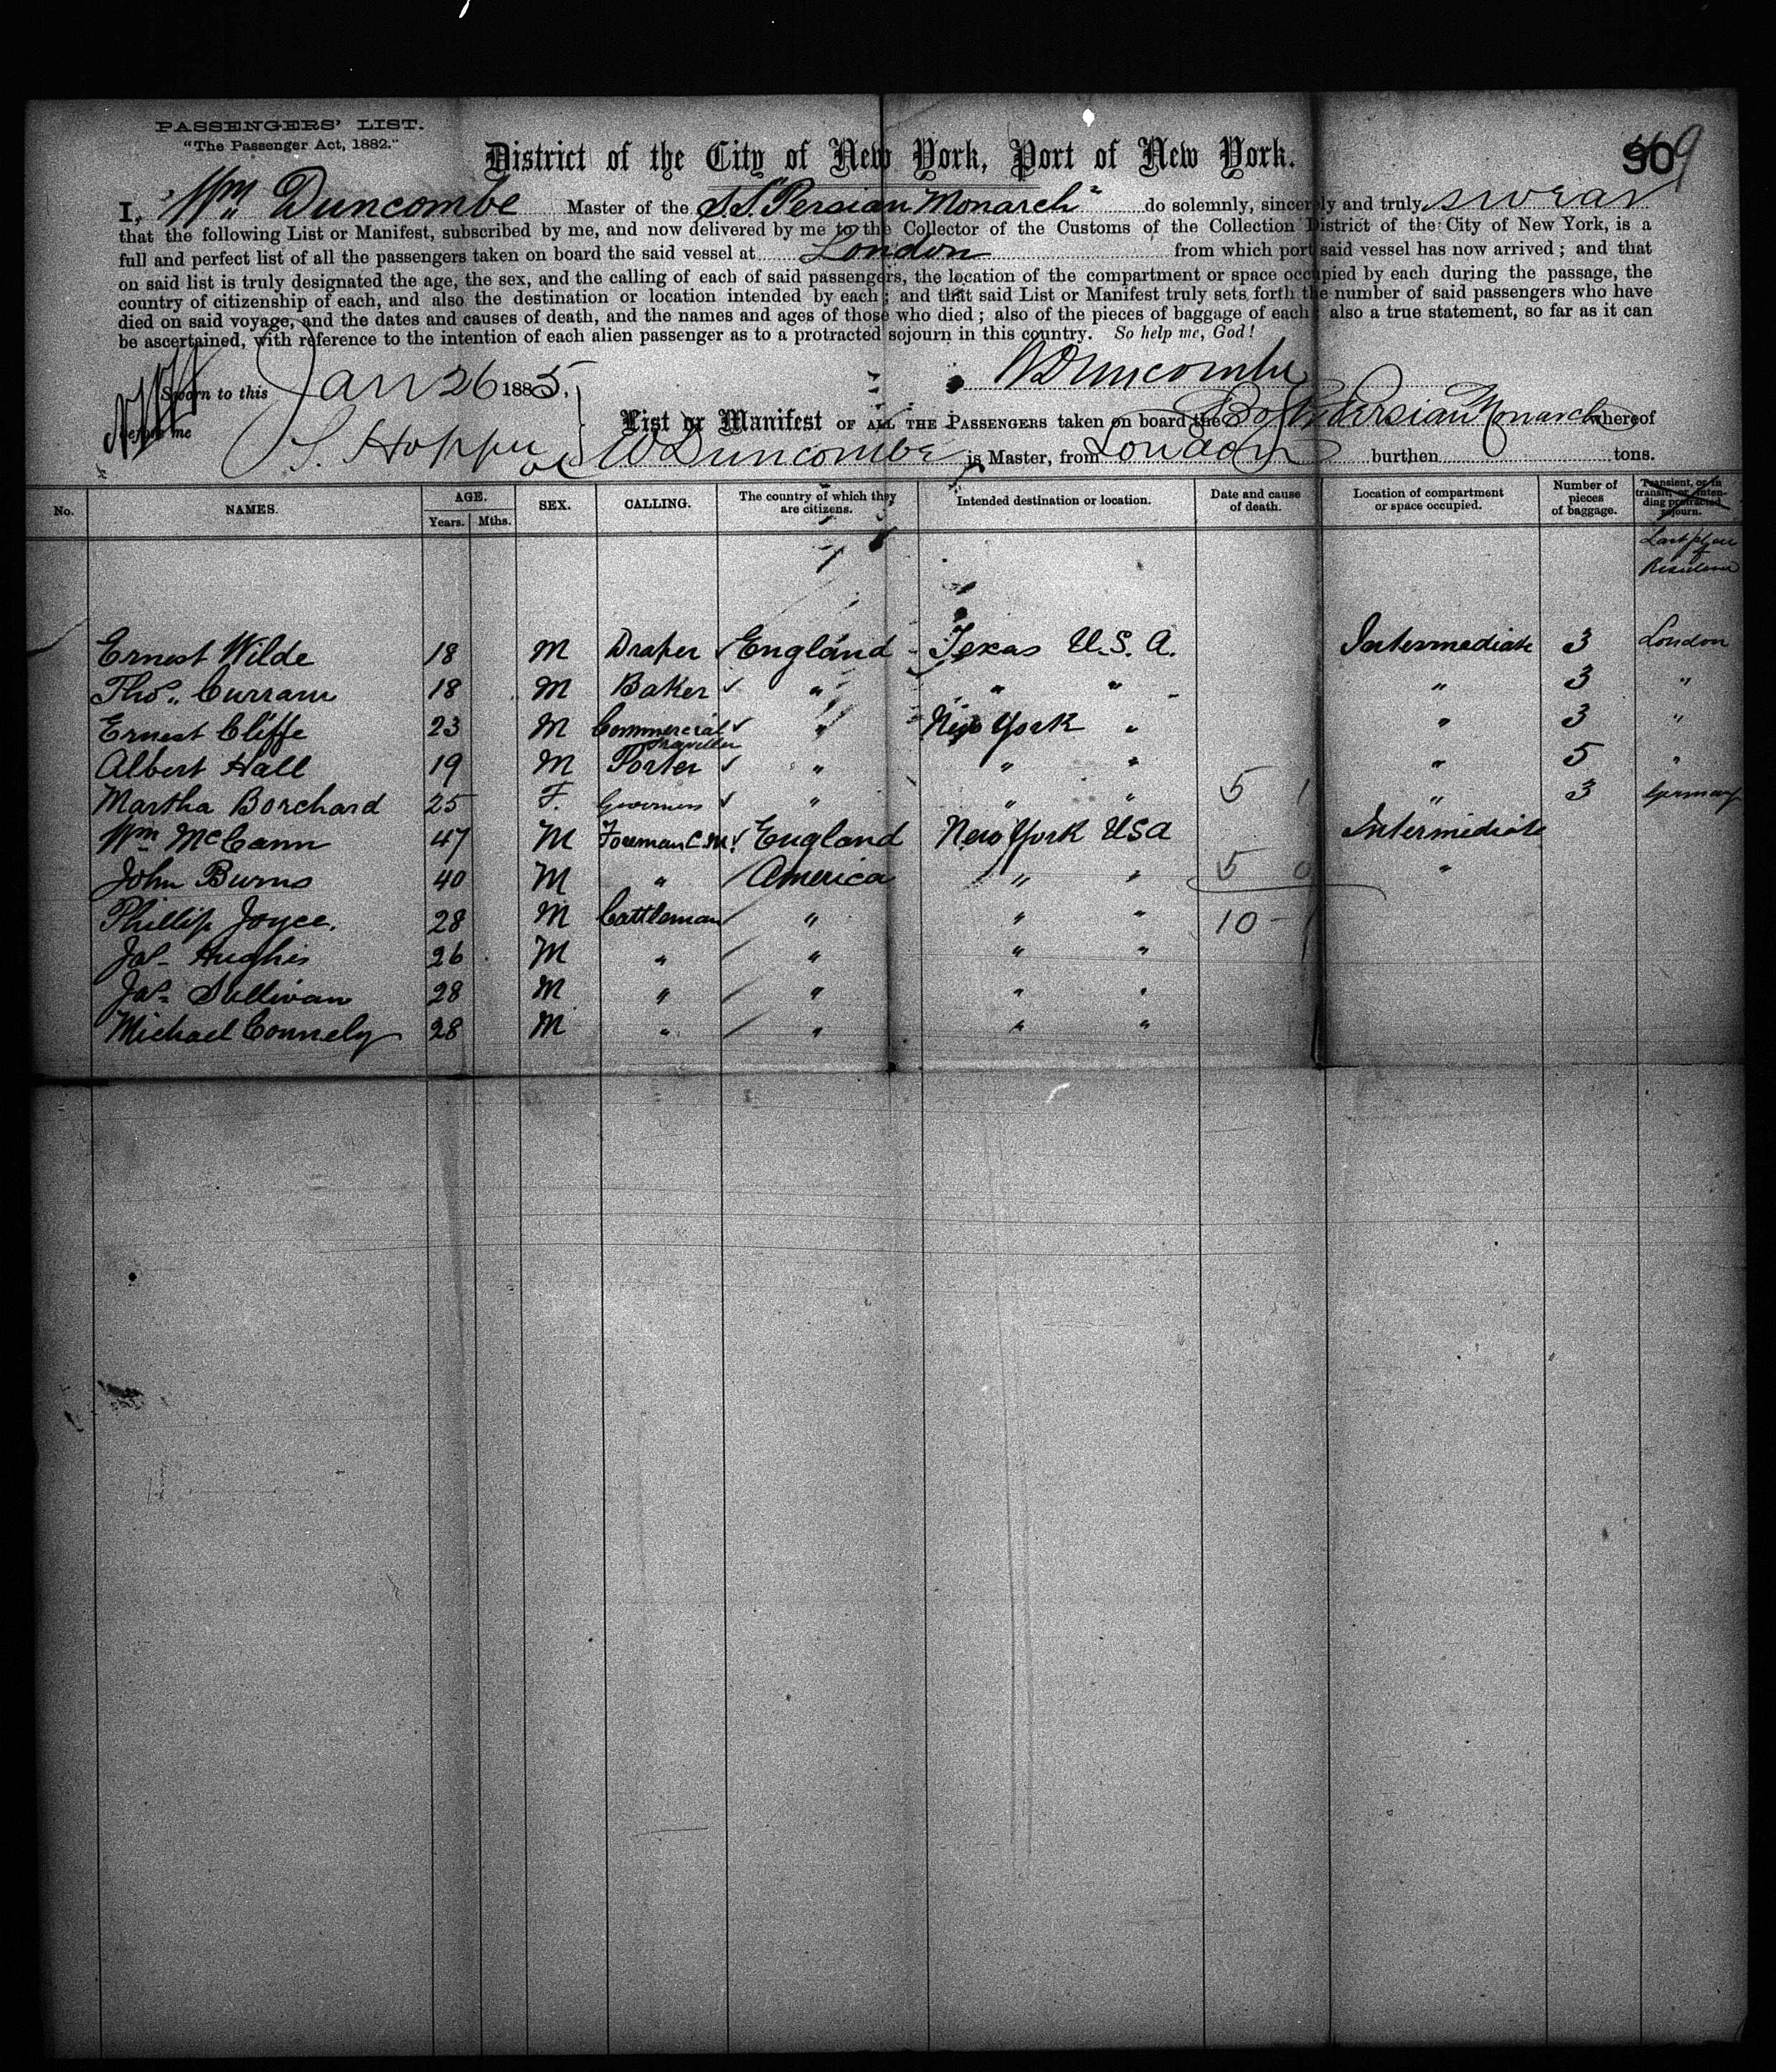 PASSENGERS' LIST.
"The Passenger Act, 1882."
District of the City of New York, Port of New York.
90 9
I, Wm Duncombe Master of the S.S. "Persian Monarch" do solemnly, sincerely and truly swear
that the following List or Manifest, subscribed by me, and now delivered by me to the Collector of the Customs of the Collection District of the City of New York, is a
full and perfect list of all the passengers taken on board the said vessel at London from which port said vessel has now arrived ; and that
on said list is truly designated the age, the sex, and the calling of each of said passengers, the location of the compartment or space occupied by each during the passage, the
country of citizenship of each, and also the destination or location intended by each ; and that said List or Manifest truly sets forth the number of said passengers who have
died on said voyage, and the dates and causes of death, and the names and ages of those who died ; also of the pieces of baggage of each ; also a true statement, so far as it can
be ascertained, with reference to the intention of each alien passenger as to a protracted sojourn in this country. So help me, God !
Sworn to this Jan 26 1885. WDuncombe
before me
List or Manifest OF ALL THE PASSENGERS taken on board the Persian Monarch whereof
W Duncombe is Master, from London burthen tons.
No. NAMES. AGE. Years. Mths. SEX. CALLING. The country of which they are citizens. Intended destination or location. Date and cause of death. Location of compartment or space occupied. Number of pieces of baggage. Transient, or in transit, or intending protracted sojourn.
Last place of Residence
Ernest Wilde 18 M Draper England Texas U.S.A. Intermediate 3 London
Thos. Curram 18 M Baker " " " " 3 "
Ernest Cliffe 23 M Commercial Traveller " New York " " 3 "
Albert Hall 19 M Porter " " " " 5 "
Martha Borchard 25 F. Governess " " " 5 1 " 3 Germany
Wm McCann 47 M Foreman C.M. England New York USA Intermediate
John Burns 40 M " America " " 5 0 "
Phillip Joyce. 28 M Cattleman " " " 10 - 1
Jas Hughis 26 M " " " "
Jas Sullivan 28 M " " " "
Michael Connely 28 M " " " "